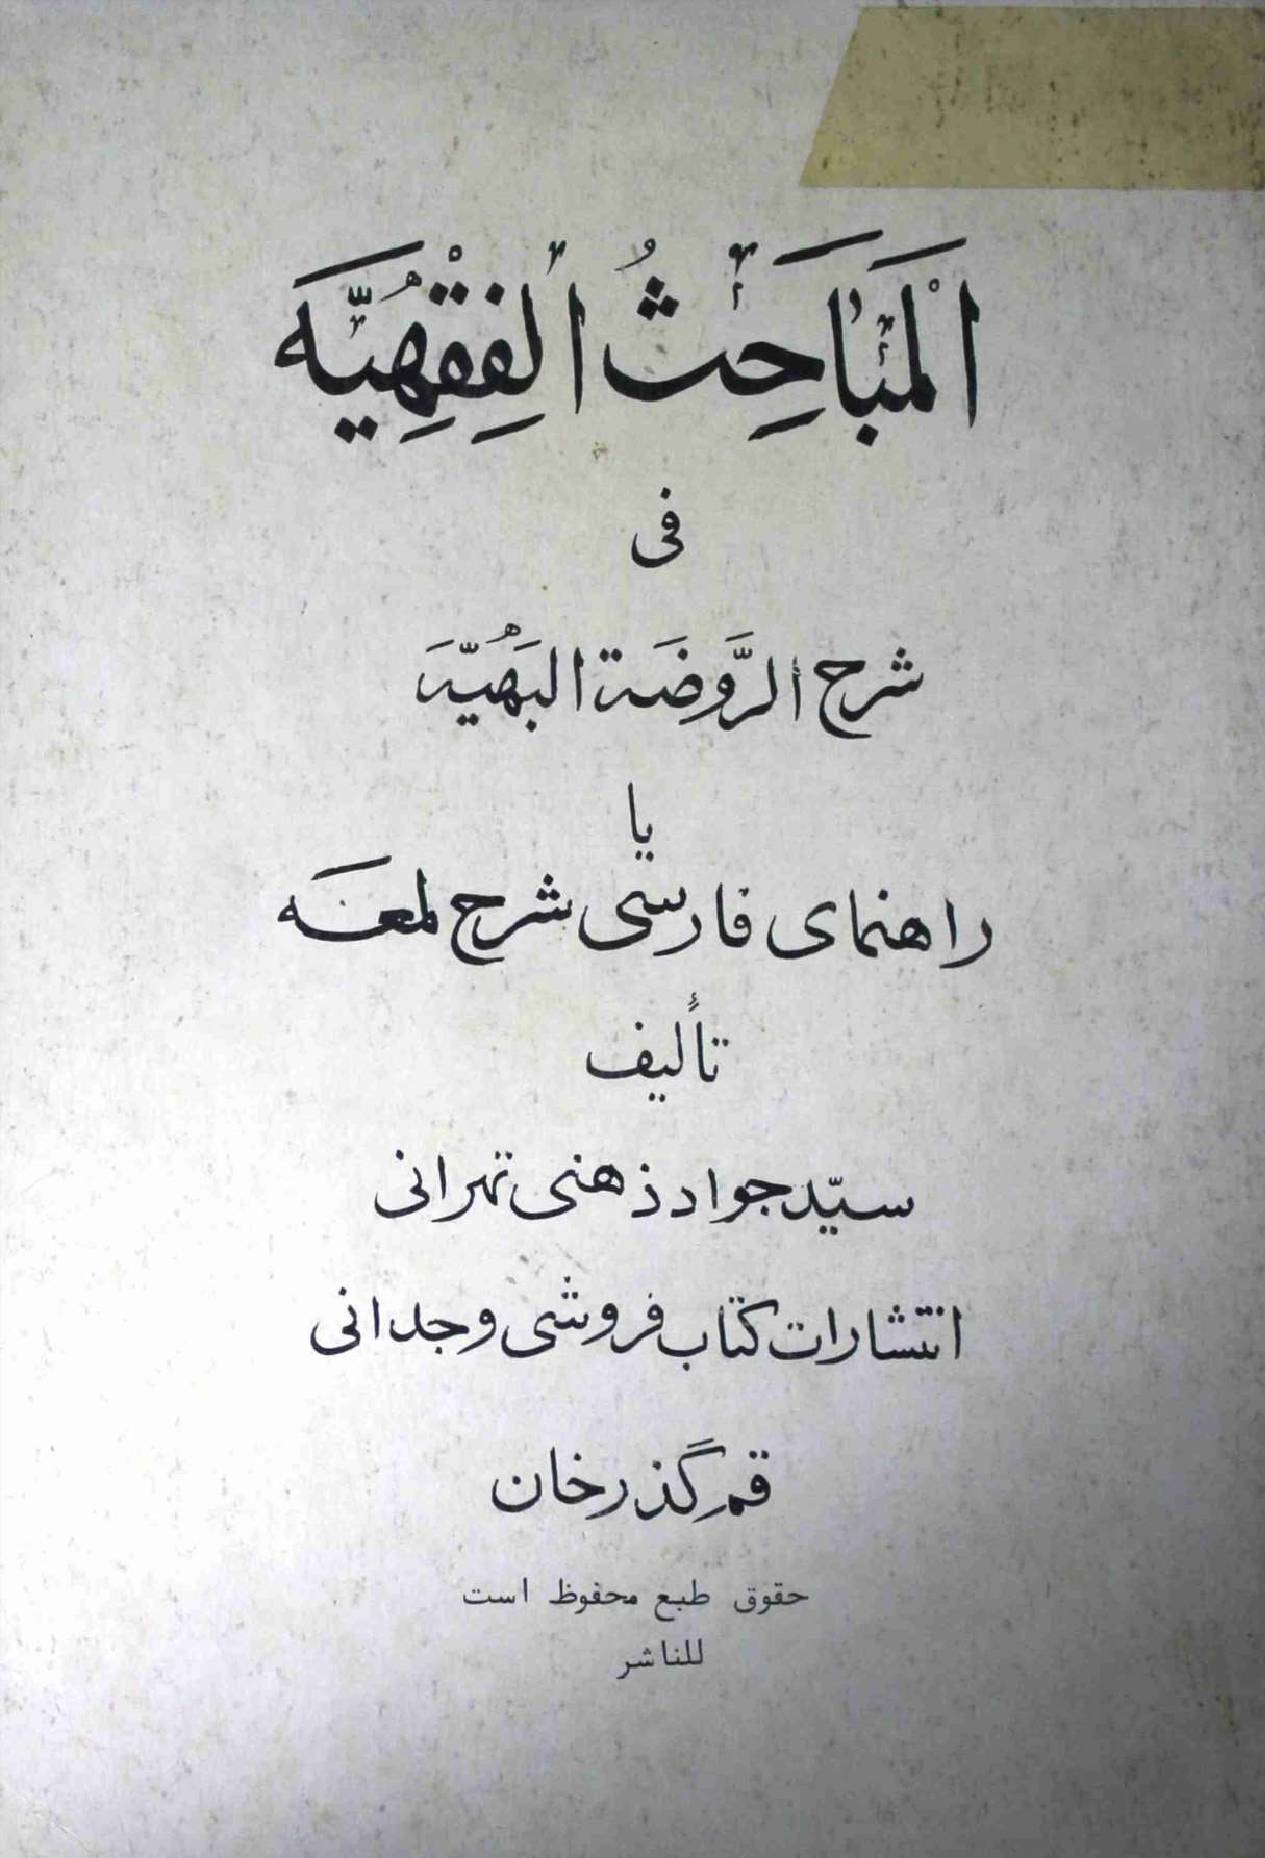 اَلْمَبَاحِثُ الْفِقْهِیَّه
فی
شرح الرَّوضَة البَهیَّة
یا
راهنمای فارسی شرح لمعه
تألیف
سیّد جواد ذهنی تهرانی
انتشارات کتاب فروشی وجدانی
قم گذرخان
حقوق طبع محفوظ است
للناشر